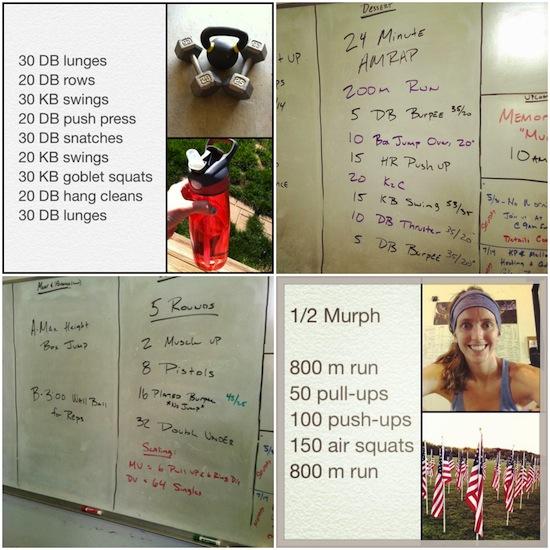 30 DB lunges
20 DB rows
30 KB swings
20 DB push press
30 DB snatches
20 KB swings
30 KB goblet squats
20 DB hang cleans
30 DB lunges
25
Dessert
24 Minute
AMRAP
200m Run
5 DB Burpee 35/20
10 Box Jump Over 20"
15 HR Push up
20 K2C
15 KB Swing 53/35
10 DB Thruster 35/20
5 DB Burpee 35/20
+ UP
PS
/14
CE
Memor
"Mu
10 AM
Join at
Details
5 Rounds
2 Muscle up
8 Pistols
16 Plated Burpee 45/25
*No Jump*
32 Double Under
Scaling:
MU = 6 Pull up & 6 Ring Dip
DU = 64 Singles
A-Max Height
Box Jump
B-3:00 Wall Ball
for Reps
1/2 Murph
800 m run
50 pull-ups
100 push-ups
150 air squats
800 m run